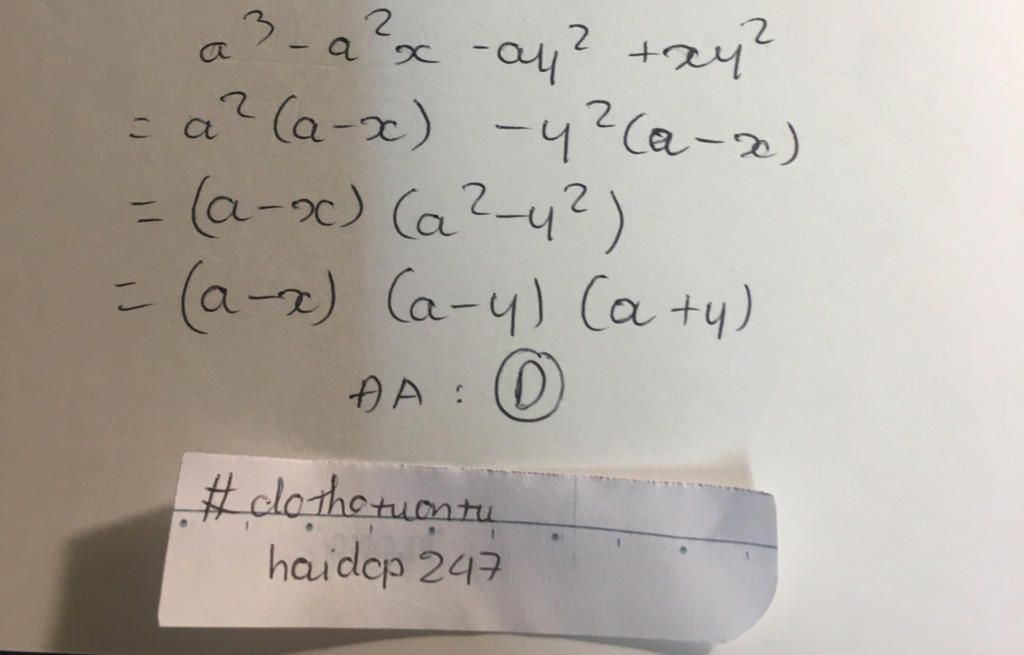 a³ - a²x - ay² + xy²
= a²(a-x) - y²(a-x)
= (a-x) (a²-y²)
= (a-x) (a-y) (a+y)
ĐA : D
#clothotuontu
haidcp 247